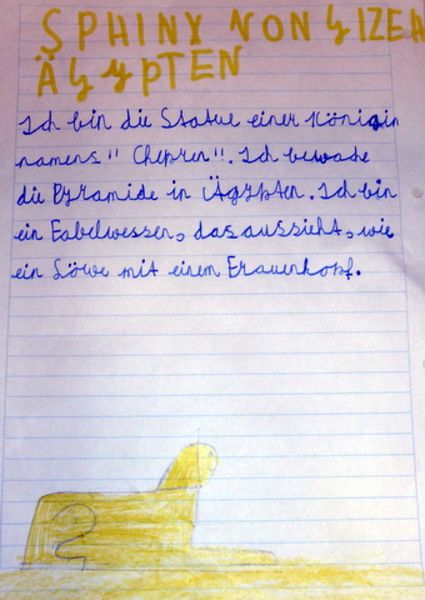 SPHINX VON GIZEH
ÄGYPTEN
Ich bin die Statue einer Königin
namens " Chephren". Ich bewache
die Pyramide in Ägypten. Ich bin
ein Fabelwessen, das aussieht, wie
ein Löwe mit einem Frauenkopf.